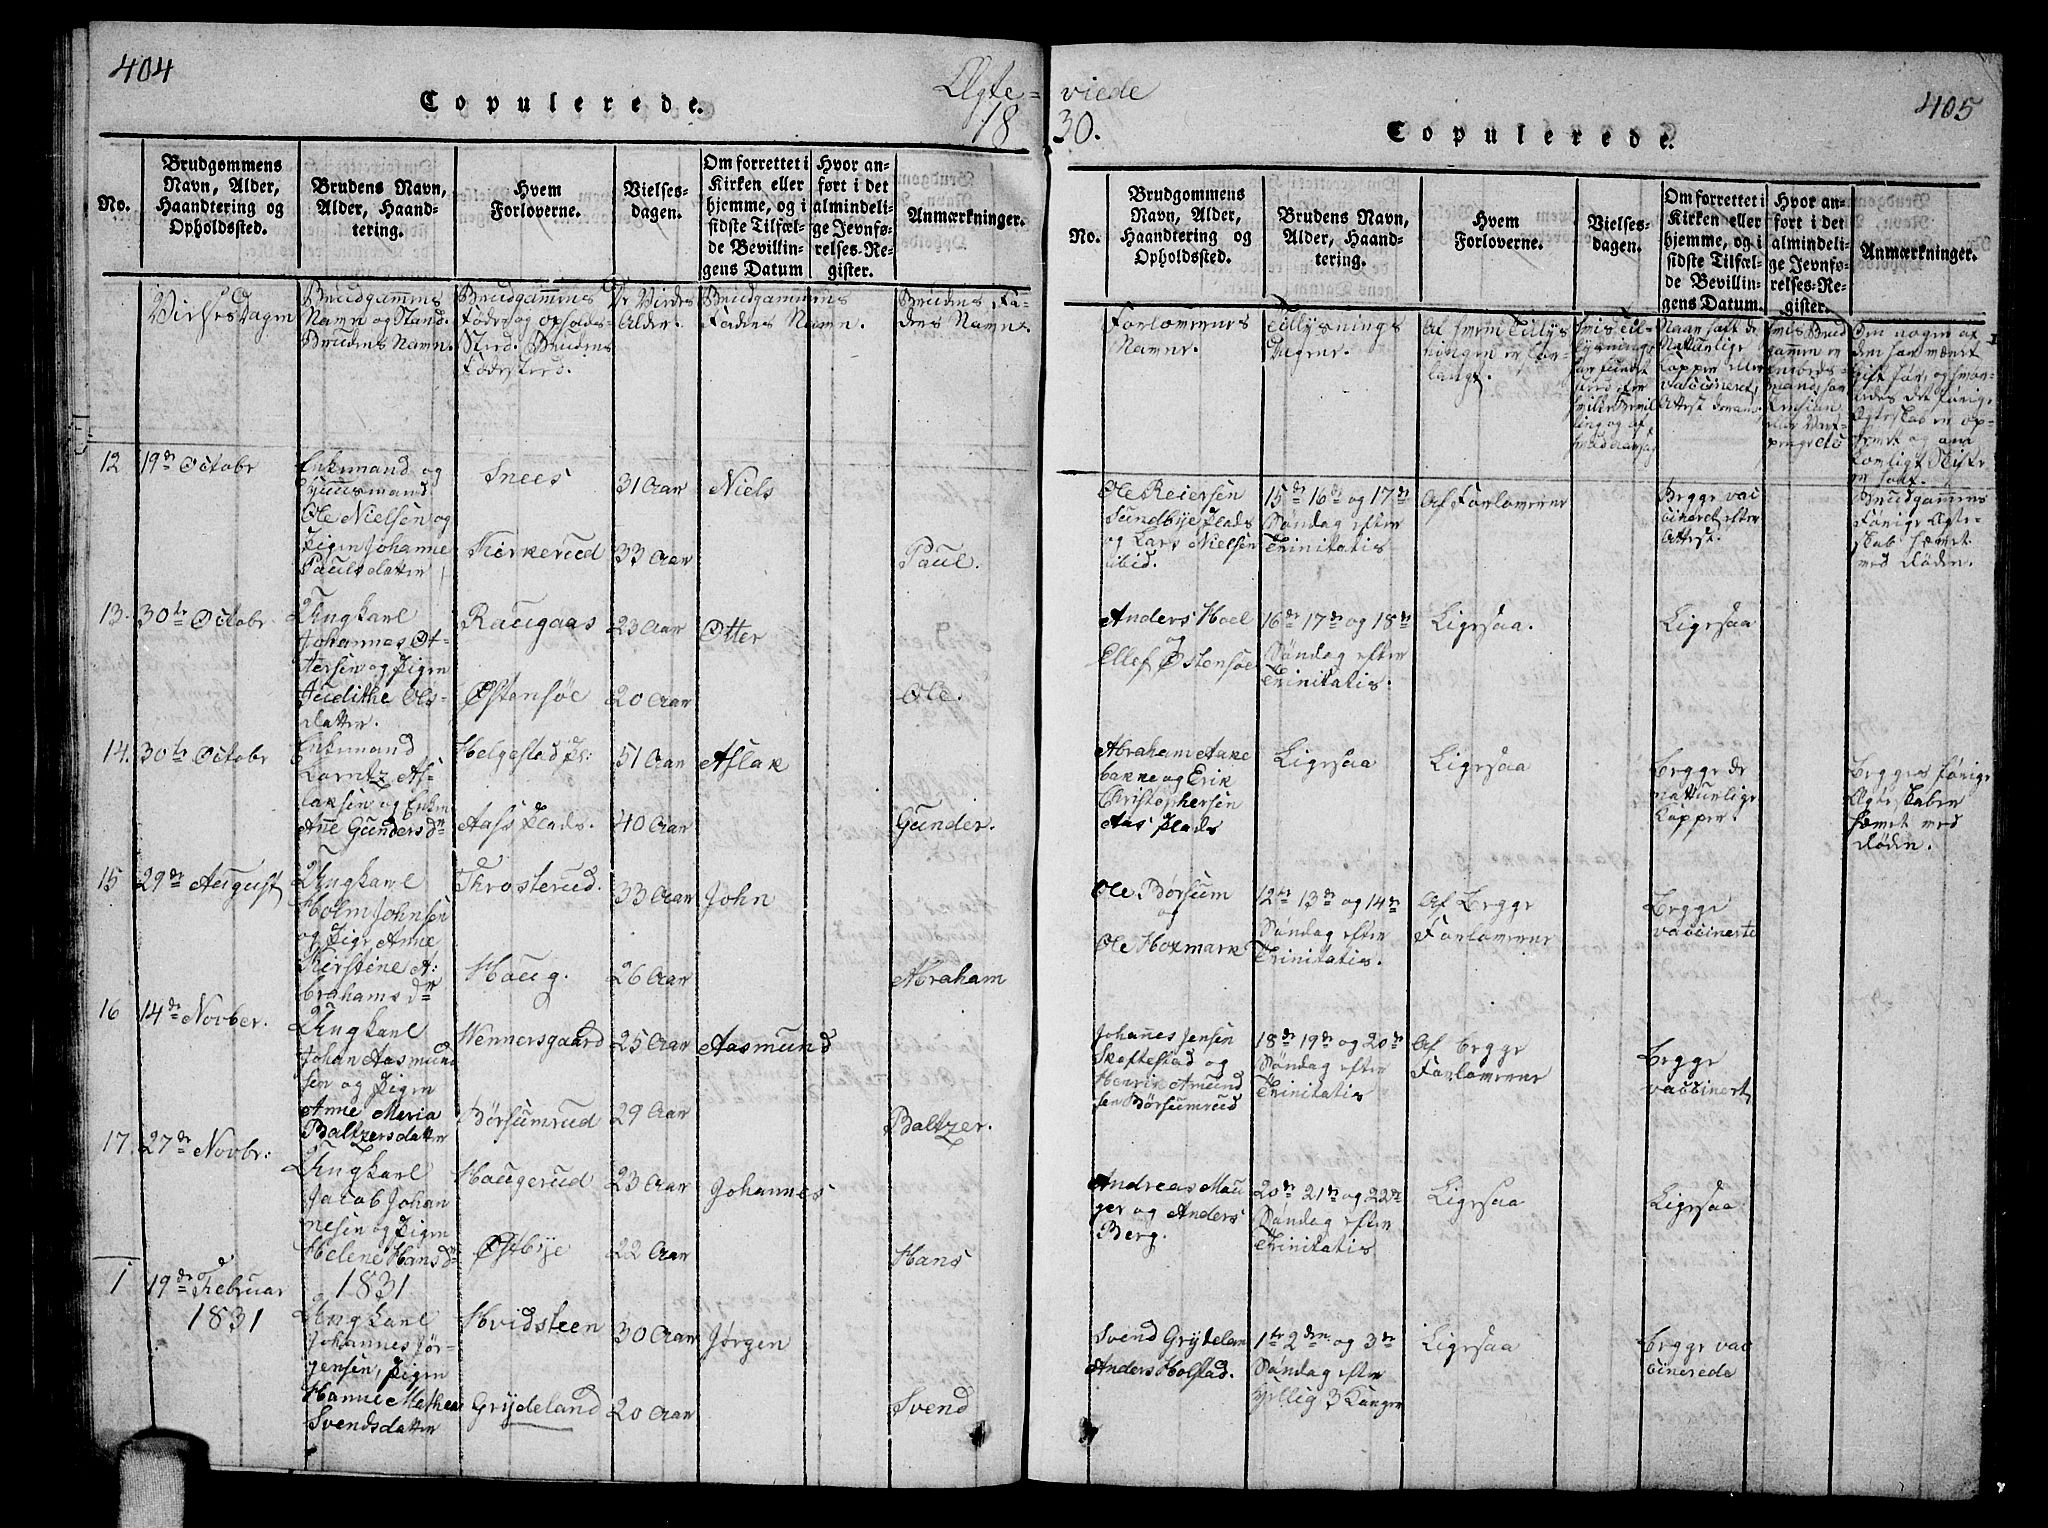 404
Copulerede.
Ægte-
18
No.
Brudgommens
Navn, Alder,
Haandtering og
Opholdssted.
Brudens Navn,
Alder, Haand-
tering.
Hvem
Forloverne.
Vielses-
dagen.
Om forrettet i
Kirken eller
hjemme, og i
sidste Tilfæl-
de Bevillin-
gens Datum
Hvor an-
ført i det
almindeli-
ge Jevnfø-
relses-Re-
gister.
Anmærkninger.
Vielses Dagen
Brudgammens
Navn og Stand.
Brudens Navn.
Brudgammens
Føde og opholds-
Sted. Brudens
Fødested.
De Viedes
Alder.
Brudgammens
Faders Navn.
Brudens Fa-
ders Navn.
12
19de Octobr
Enkemand og
Huusmand
Ole Nielsen og
Pigen Johanne
Paulsdatter
Snees
Kirkerud
31 Aar
33 Aar
Niels
Paul.
13.
30te Octobr
Ungkarl
Johannes Ot-
tersen og Pigen
Judithe Ols-
datter.
Raugaas
Østensøe
23 Aar
20 Aar
Otter
Ole.
14.
30te Octobr
Enkemand
Lorntz As-
laksen og Enken
Ane Gundersdr
Helgestad Pl:
Aass Plads.
51 Aar
40 Aar
Aslak
Gunder.
15
29de August
Ungkarl
Holm Johnsen
og Pige Anne
Kirstine A:
brahamsdr
Throsterud.
Houg.
33 Aar
26 Aar
John
Abraham
16
14de Novber.
Ungkarl
Johan Aasmund
sen og Pigen
Anne Maria
Baltzersdatter
Wennersgaard
Børsumrud
25 Aar
29 Aar
Aasmund
Baltzer.
17.
27de Novbr:
Ungkarl
Jacob Johan
nesen og Pigen
Helene Hansdr
Haugerud
Østbye
23 Aar
22 Aar
Johannes
Hans
1
19de Februar
1831
1831
Ungkarl
Johannes Jør-
gensen, Pigen
Hanne Mathea
Svendsdatter
Hvidsteen
Grydeland
30 Aar
20 Aar
Jørgen
Svend
viede
30.
405
Copulerede.
No.
Brudgommens
Navn, Alder,
Haandtering og
Opholdssted.
Brudens Navn,
Alder, Haand-
tering.
Hvem
Forloverne.
Vielses-
dagen.
Om forrettet i
Kirken eller
hjemme, og i
sidste Tilfæl-
de Bevillin-
gens Datum.
Hvor an-
ført i det
almindeli-
ge Jevnfø-
relses-Re-
gister.
Anmærkninger.
Forlovernes
Navne.
Tillysnings
Dagene.
Af hvem Tillys
ningen er for-
langt.
Hvis Til-
lysning
har fundet
Sted efter
Naar havt de
Naturlige
Kopper eller
vaccineret,
Attest derom.
Hvis Brud
gammen er
Om nogen af
dem har været
gift før, og hvor-
ledes det forige
Ægteskab er op-
hævet og om
lovligt Skifte
er holdt.
Ole Reiersen
Sundbye Plads
og Lars Nielsen
ibid.
15de 16de og 17de
Søndag efter
Trinitatis
Af Forloverne
Begge vac
cineret efter
Attest.
Brudgammens
Forrige Ægte-
skab hævet
med Døden.
Anders Hoel
og
Ellef Østensøe
16de 17de og 18de
Søndag efter
Trinitatis.
Ligesaa.
Ligesaa
Abraham Aake
bakke og Erik
Christophersen
Aas Plads
Ligesaa
Ligesaa
Begge de
naturlige
Kopper.
Begges forige
Ægteskaber
hævet med
Døden.
Ole Børsum
og
Ole Hoxmark
12te 13de og 14de
Søndag efter
Trinitatis.
Af Begge
Forloverne
Begge
vaccinerte
Johannes Jensen
Skoftestad og
Henrik Amund
sen Børsumrud
18de 19de og 20de
Søndag efter
Trinitatis
Af begge
Forloverne
Begge
vaccinert
Andreas Mau
ger og Anders
Berg.
20de 21de og 22de
Søndag efter
Trinitatis
Ligesaa
Ligesaa
Svend Grydelan
Anders Holstad.
1te 2den og 3de
Søndag efter
hellig 3 Konger
Ligesaa
Begge vac
cinerede